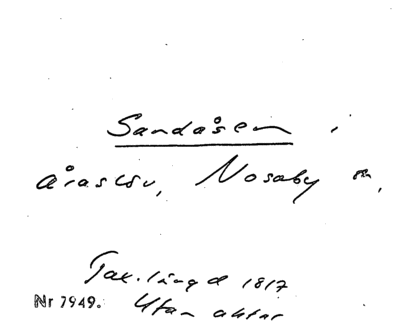 Sandåsen i
Araslöv, Nosaby sn,
Tax.längd 1817
Nr 7949. Utan aktnr